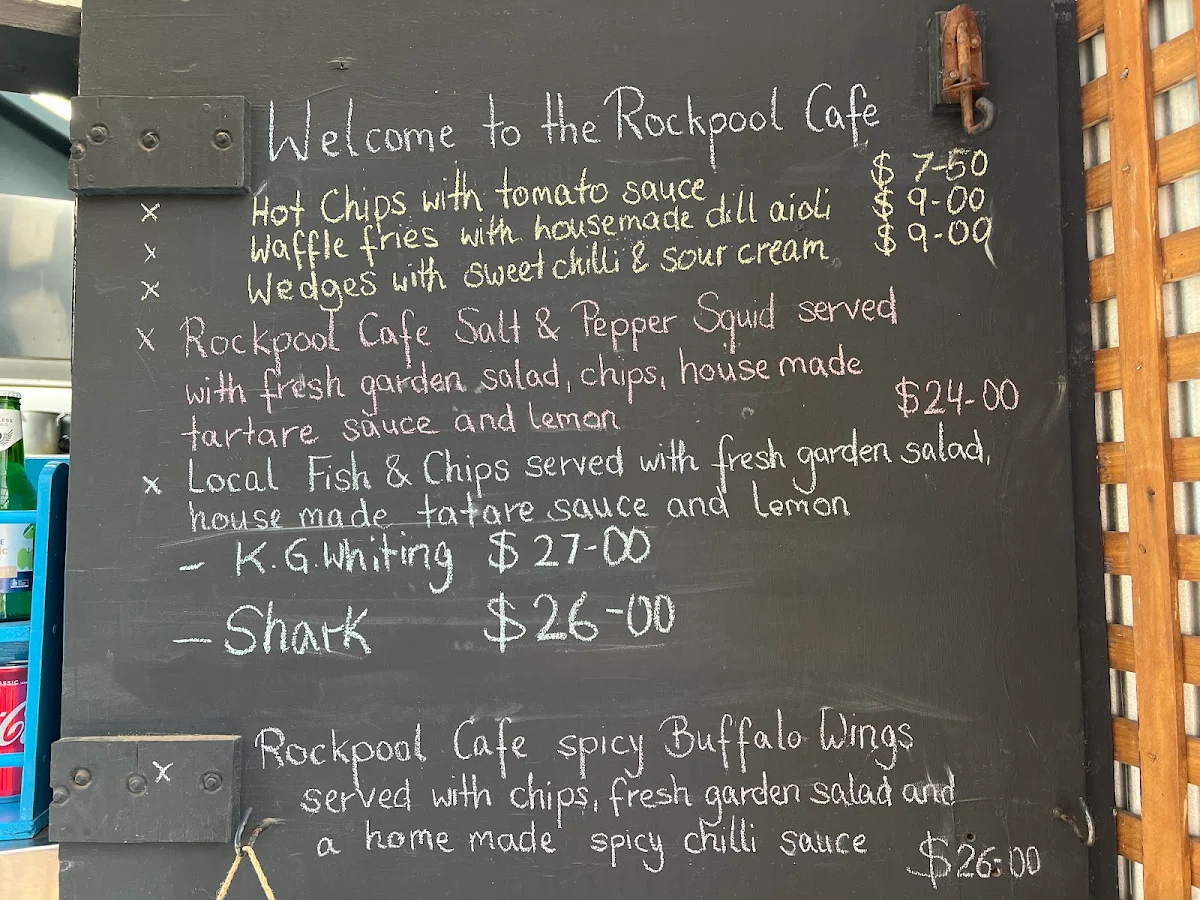 Welcome to the Rockpool Cafe
x Hot Chips with tomato sauce $ 7-50
x Waffle fries with housemade dill aioli $ 9-00
x Wedges with sweet chilli & sour cream $ 9-00
x Rockpool Cafe Salt & Pepper Squid served
with fresh garden salad, chips, house made
tartare sauce and lemon $24-00
x Local Fish & Chips served with fresh garden salad,
house made tatare sauce and lemon
- K.G.Whiting $27-00
- Shark $26-00
x Rockpool Cafe spicy Buffalo Wings
served with chips, fresh garden salad and
a home made spicy chilli sauce $26-00